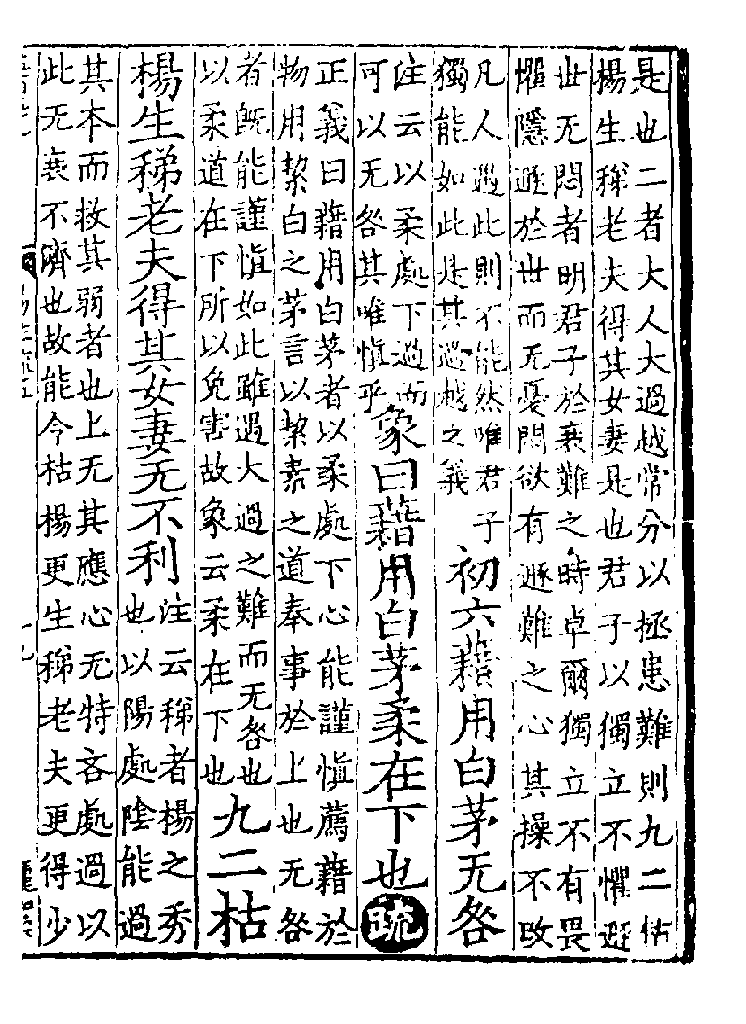 是也二者大人大過越常分以拯患難則九二枯
楊生稊老夫得其女妻是也君子以獨立不懼遯
世无悶者明君子於衰難之時卓爾獨立不有畏
懼隱遯於世而无憂悶欲有遯難之心其操不改
凡人遇此則不能然唯君子
獨能如此是其過越之義
初六藉用白茅无咎
注云以柔處下過而
可以无咎其唯慎乎
象曰藉用白茅柔在下也疏
正義曰藉用白茅者以柔處下心能謹慎薦藉於
物用絜白之茅言以絜素之道奉事於上也无咎
者既能謹慎如此雖遇大過之難而无咎也
以柔道在下所以免害故象云柔在下也
九二枯
楊生稊老夫得其女妻无不利
注云稊者楊之秀
也以陽處陰能過
其本而救其弱者也上无其應心无特吝處過以
此无衰不濟也故能令枯楊更生稊老夫更得少